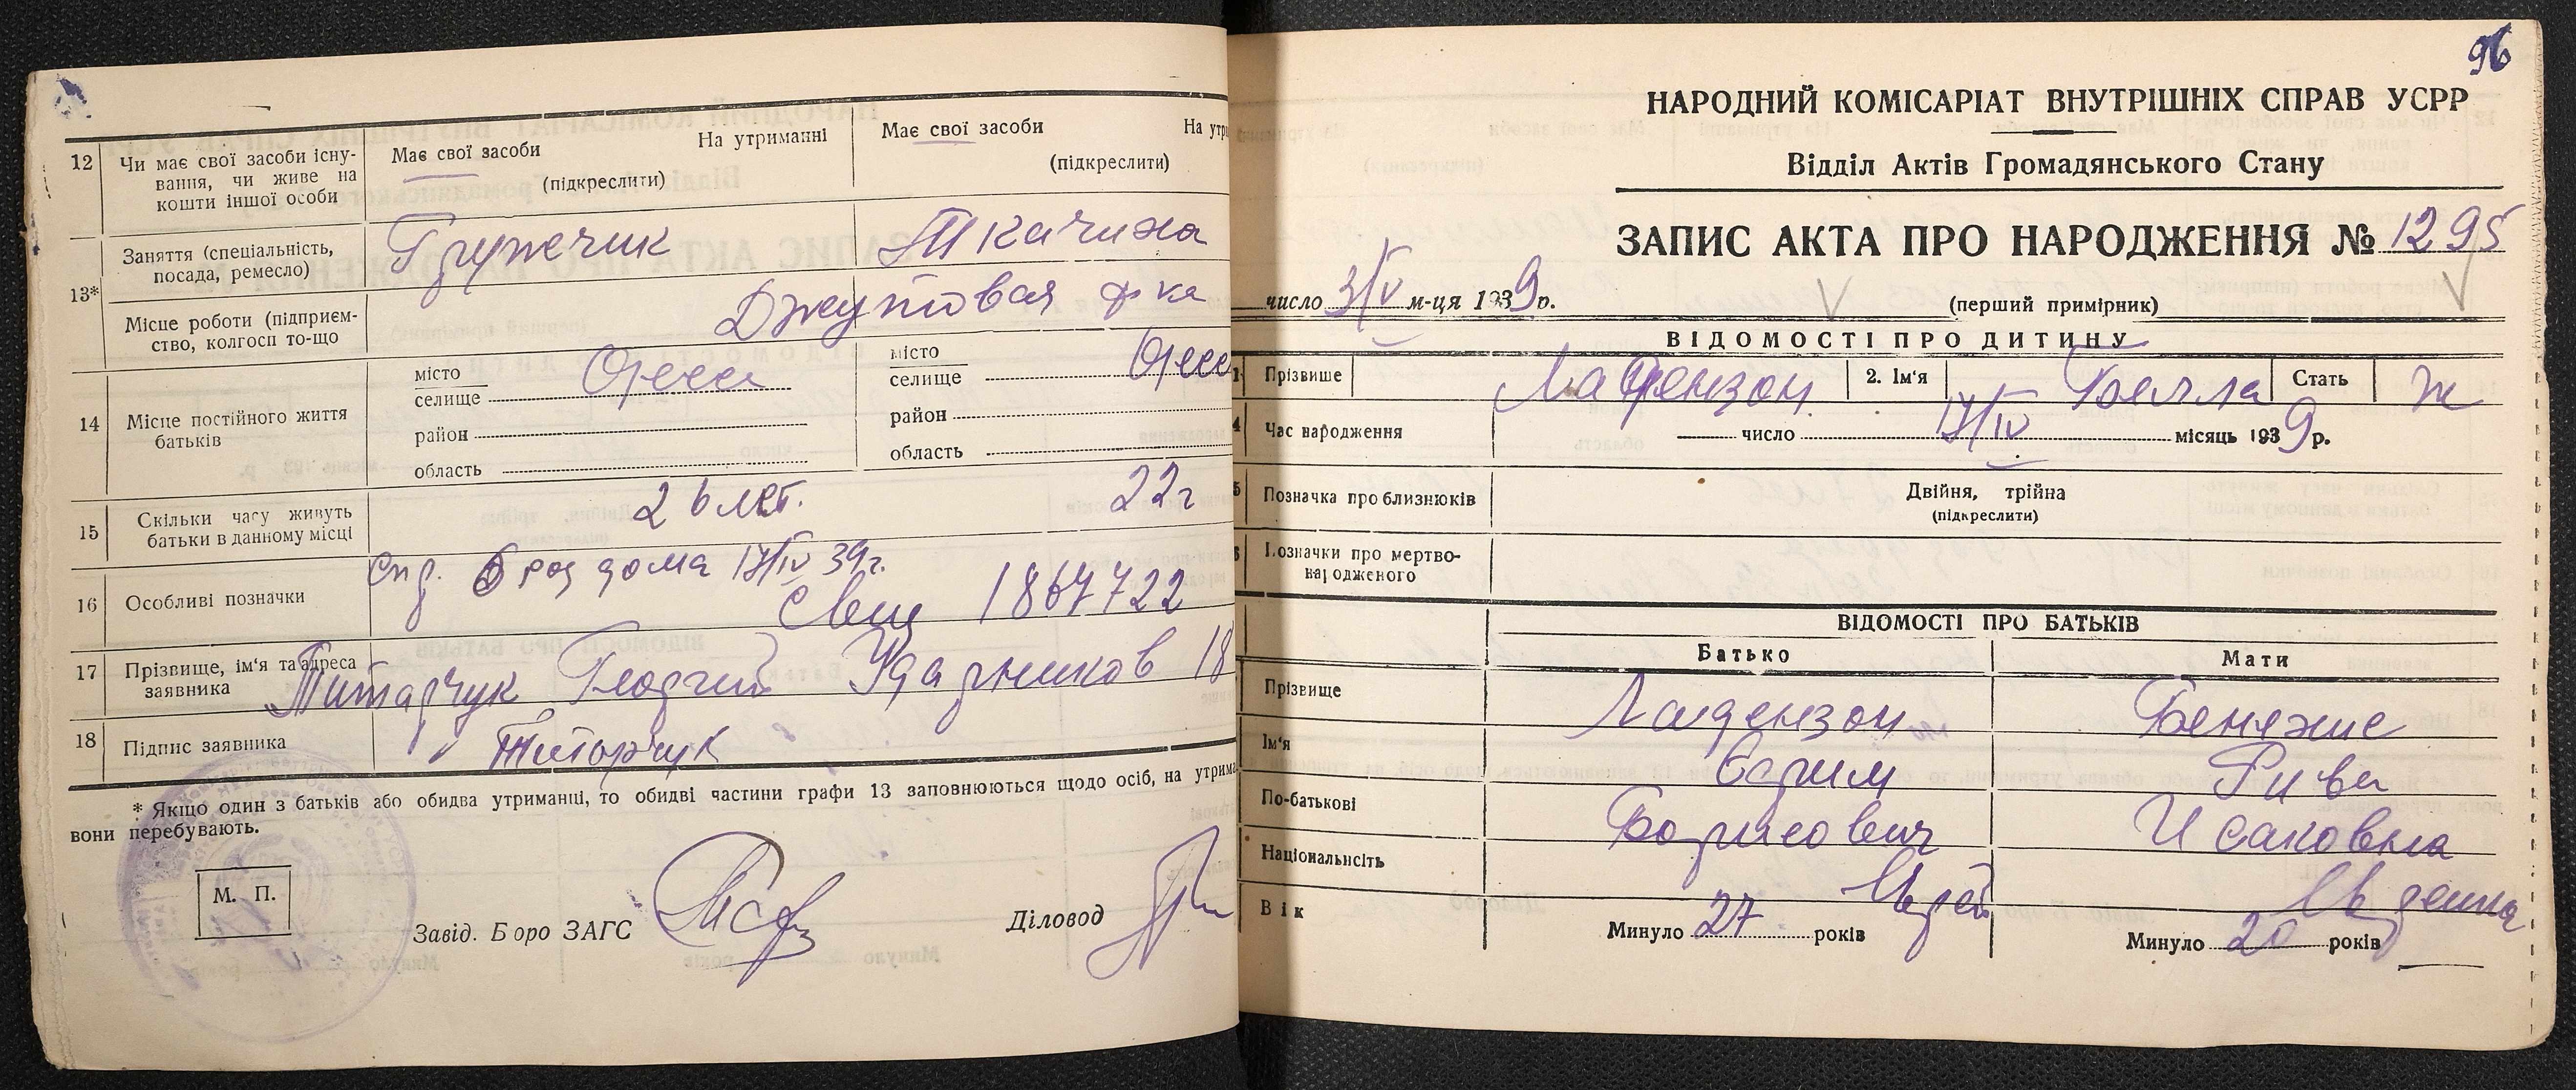 12 Чи має свої засоби існу-
вання, чи живе на
кошти іншої особи
Має свої засоби На утриманні
(підкреслити)
Має свої засоби На утри
(підкреслити)
13*
Заняття (спеціальність,
посада, ремесло)
Грузчик Ткачиха
Місце роботи (підприєм-
ство, колгосп то-що
Джутовая ф-ка
14 Місце постійного життя
батьків
місто
селище Одесса
район
область
місто
селище Одесс
район
область
15 Скільки часу живуть
батьки в данному місці
26 лет. 22 г
16 Особливі позначки
Спр. 5 род дома 17/IV 39г.
1867722
17 Прізвище, ім'я та адреса
заявника
Титарчук Георгий Ударников 18
18 Підпис заявника
Титарчук
* Якщо один з батьків або обидва утриманці, то обидві частини графи 13 заповнюються щодо осіб, на утрима
вони перебувають.
М. П.
Завід. Бюро ЗАГС
Діловод
96
НАРОДНИЙ КОМІСАРІАТ ВНУТРІШНІХ СПРАВ УСРР
Відділ Актів Громадянського Стану
ЗАПИС АКТА ПРО НАРОДЖЕННЯ № 1295
число 3/V м-ця 1939 р.
(перший примірник)
ВІДОМОСТІ ПРО ДИТИНУ
1 Прізвище Ладензон 2. Ім'я Бэлла Стать ж
4 Час народження число 17/IV місяць 1939 р.
5 Позначка про близнюків Двійня, трійна
(підкреслити)
6 Позначки про мертво-
народженого
ВІДОМОСТІ ПРО БАТЬКІВ
Батько Мати
Прізвище Ладензон
Ім'я Ефрим Рива
По-батькові Борисович Исаковна
Національність Еврей Еврейка
Вік Минуло 27 років Минуло 20 років